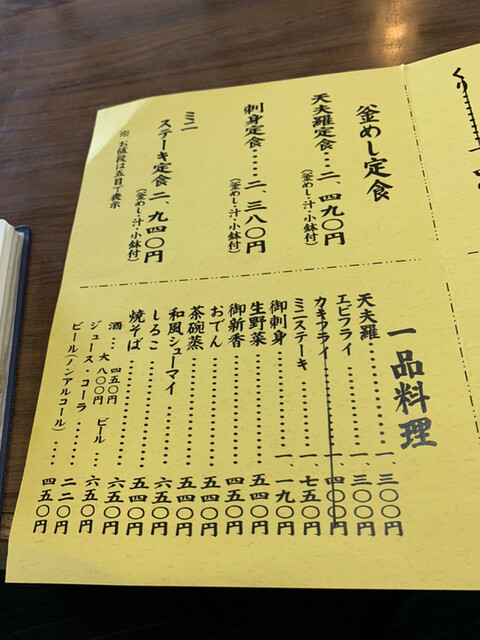 くり
釜めし定食
天夫羅定食…二、四九〇円
(釜めし・汁・小鉢付)
刺身定食……二、三八〇円
(釜めし・汁・小鉢付)
ミニ
ステーキ定食 二、九四〇円
(釜めし・汁・小鉢付)
※お値段は五目で表示
一品料理
天夫羅……………一、三〇〇円
エビフライ…………一、三〇〇円
カキフライ…………一、四〇〇円
ミニステーキ………一、七五〇円
御刺身……………一、一九〇円
生野菜……………五四〇円
御新香……………四五〇円
おでん……………五四〇円
茶碗蒸……………五四〇円
和風シューマイ………六五〇円
しるこ……………五四〇円
焼そば……………六五〇円
酒…四五〇円 ビール…六五〇円
大 八〇〇円
ジュース・コーラ………二二〇円
ビール(ノンアルコール)……四五〇円